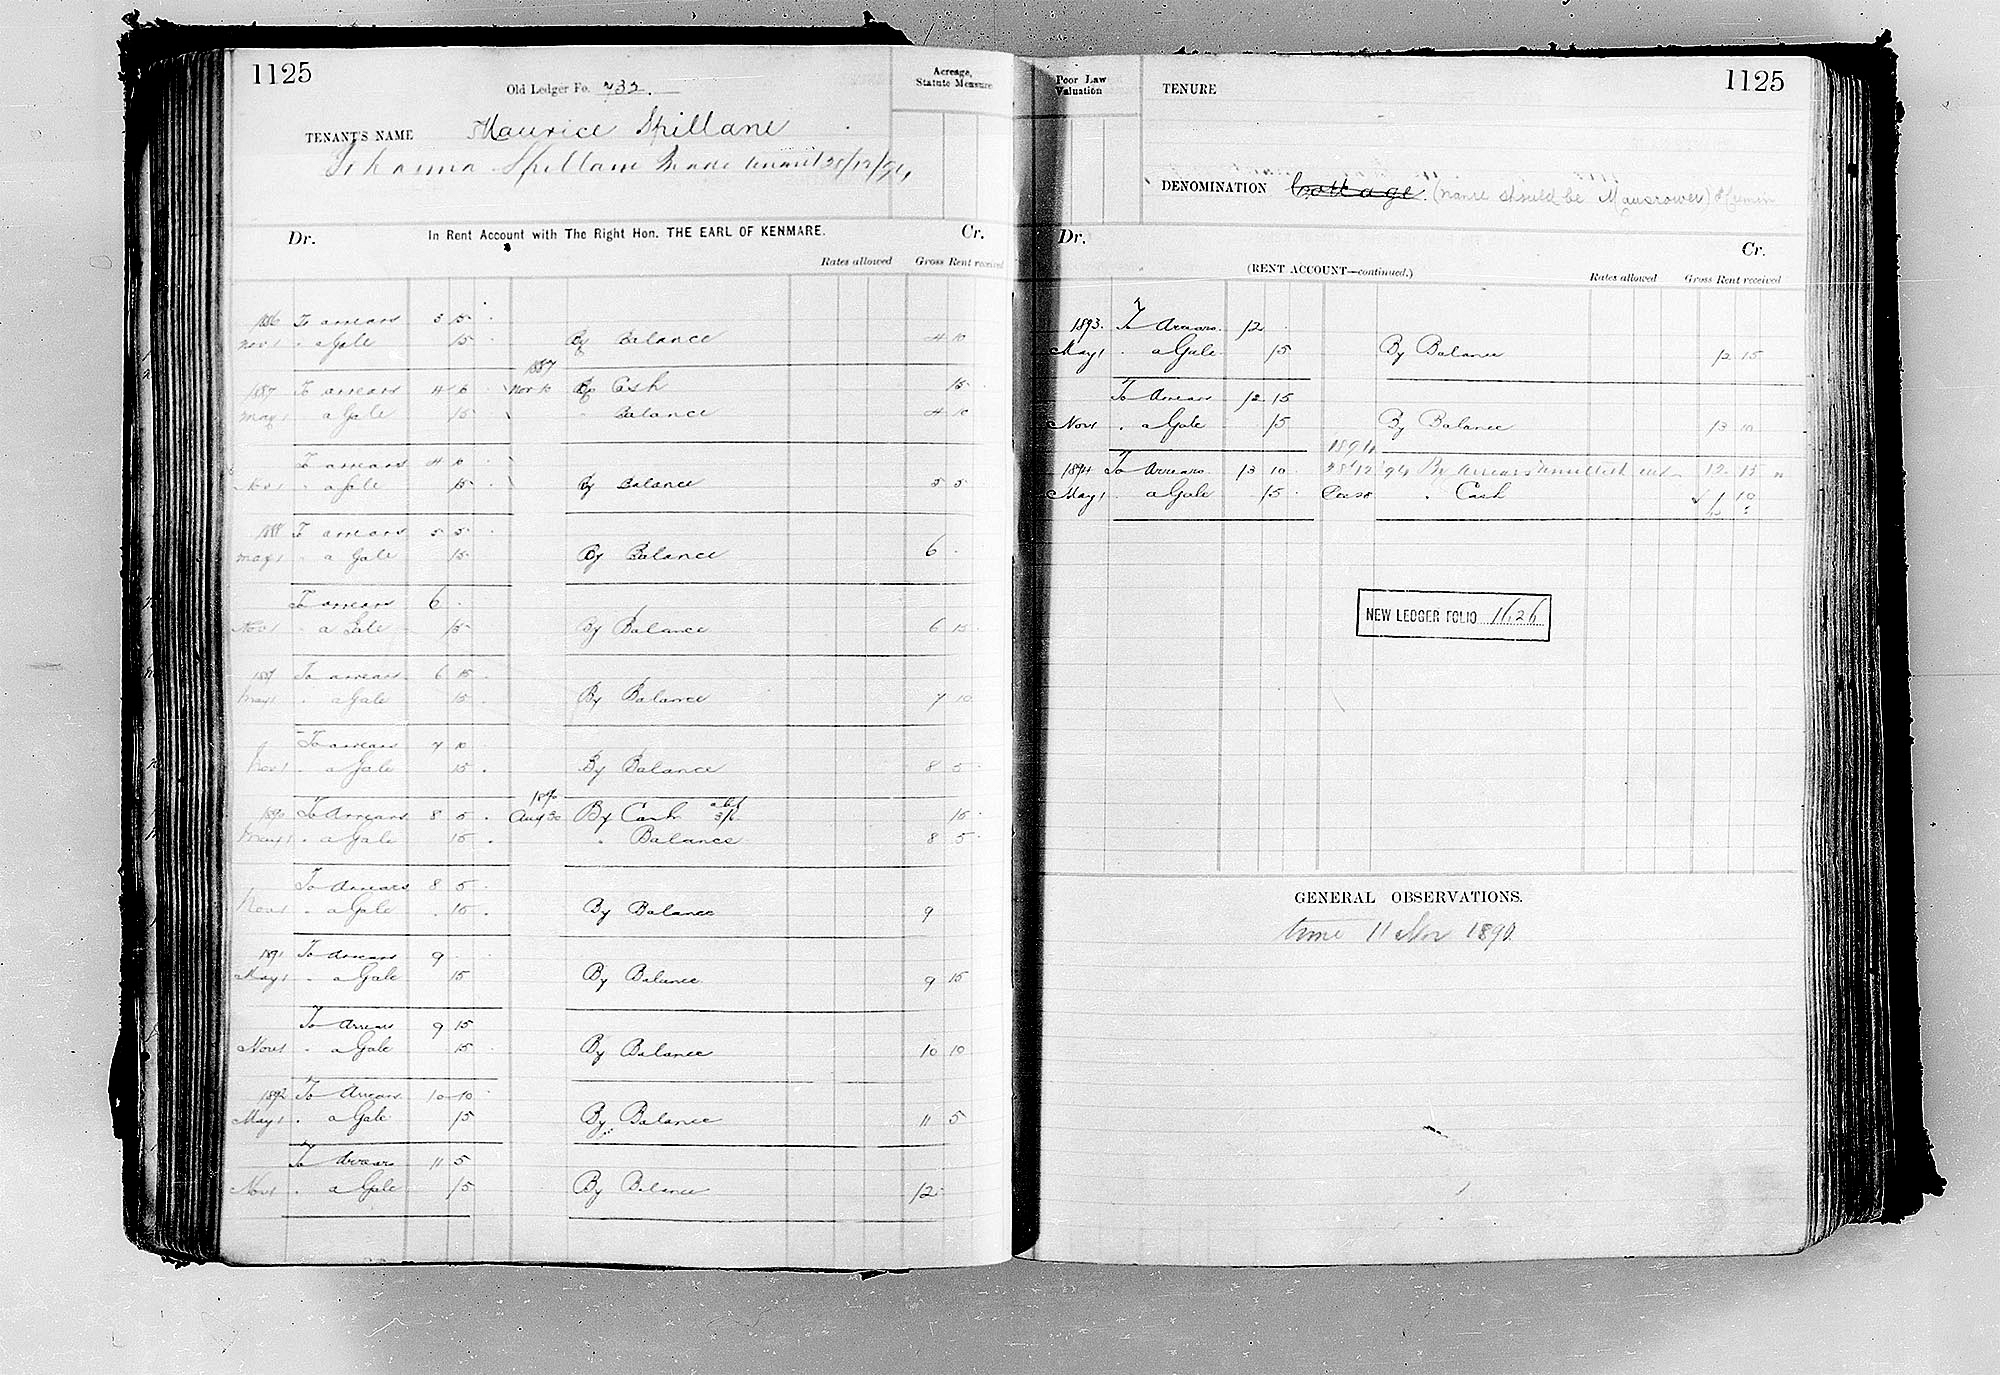 1125
Old Ledger Fo. 732.
Acreage,
Statute Measure
TENANT'S NAME Maurice Spillane
Johanna Spillane made tenant 28/12/94
Dr. In Rent Account with The Right Hon. THE EARL OF KENMARE. Cr.
Rates allowed Gross Rent received
1886 To arrears 3 15
Nov 1 " a Gale 15 By Balance 4 10
1887
1887 To arrears 4 10 Nov 10 By Cash 15
May 1 " a Gale 15 " Balance 4 10
To arrears 4 10
Nov 1 " a Gale 15 By Balance 5 5
1888 To arrears 5 5
May 1 " a Gale 15 By Balance 6
To arrears 6
Nov 1 " a Gale 15 By Balance 6 15
1889 To arrears 6 15
May 1 " a Gale 15 By Balance 7 10
To arrears 7 10
Nov 1 " a Gale 15 By Balance 8 5
1890
1890 To Arrears 8 5 Aug 30 By Cash 15
May 1 " a Gale 15 " Balance 8 5
To Arrears 8 5
Nov 1 " a Gale 15 By Balance 9
1891 To Arrears 9
May 1 " a Gale 15 By Balance 9 15
To Arrears 9 15
Nov 1 " a Gale 15 By Balance 10 10
1892 To Arrears 10 10
May 1 " a Gale 15 By Balance 11 5
To Arrears 11 5
Nov 1 " a Gale 15 By Balance 12
1125
Poor Law
Valuation
TENURE
DENOMINATION Cottage (name should be Mausrower)
Dr. Cr.
(RENT ACCOUNT—continued.)
Rates allowed Gross Rent received
1893. To Arrears 12
May 1 " a Gale 15 By Balance 12 15
To Arrears 12 15
Nov 1 " a Gale 15 By Balance 13 10
1894
1894 To Arrears 13 10 28/12/94 By Arrears 12 15
May 1 " a Gale 15 Dec 28 " Cash 1 10
NEW LEDGER FOLIO 1626
GENERAL OBSERVATIONS.
time 11 Nov 1890